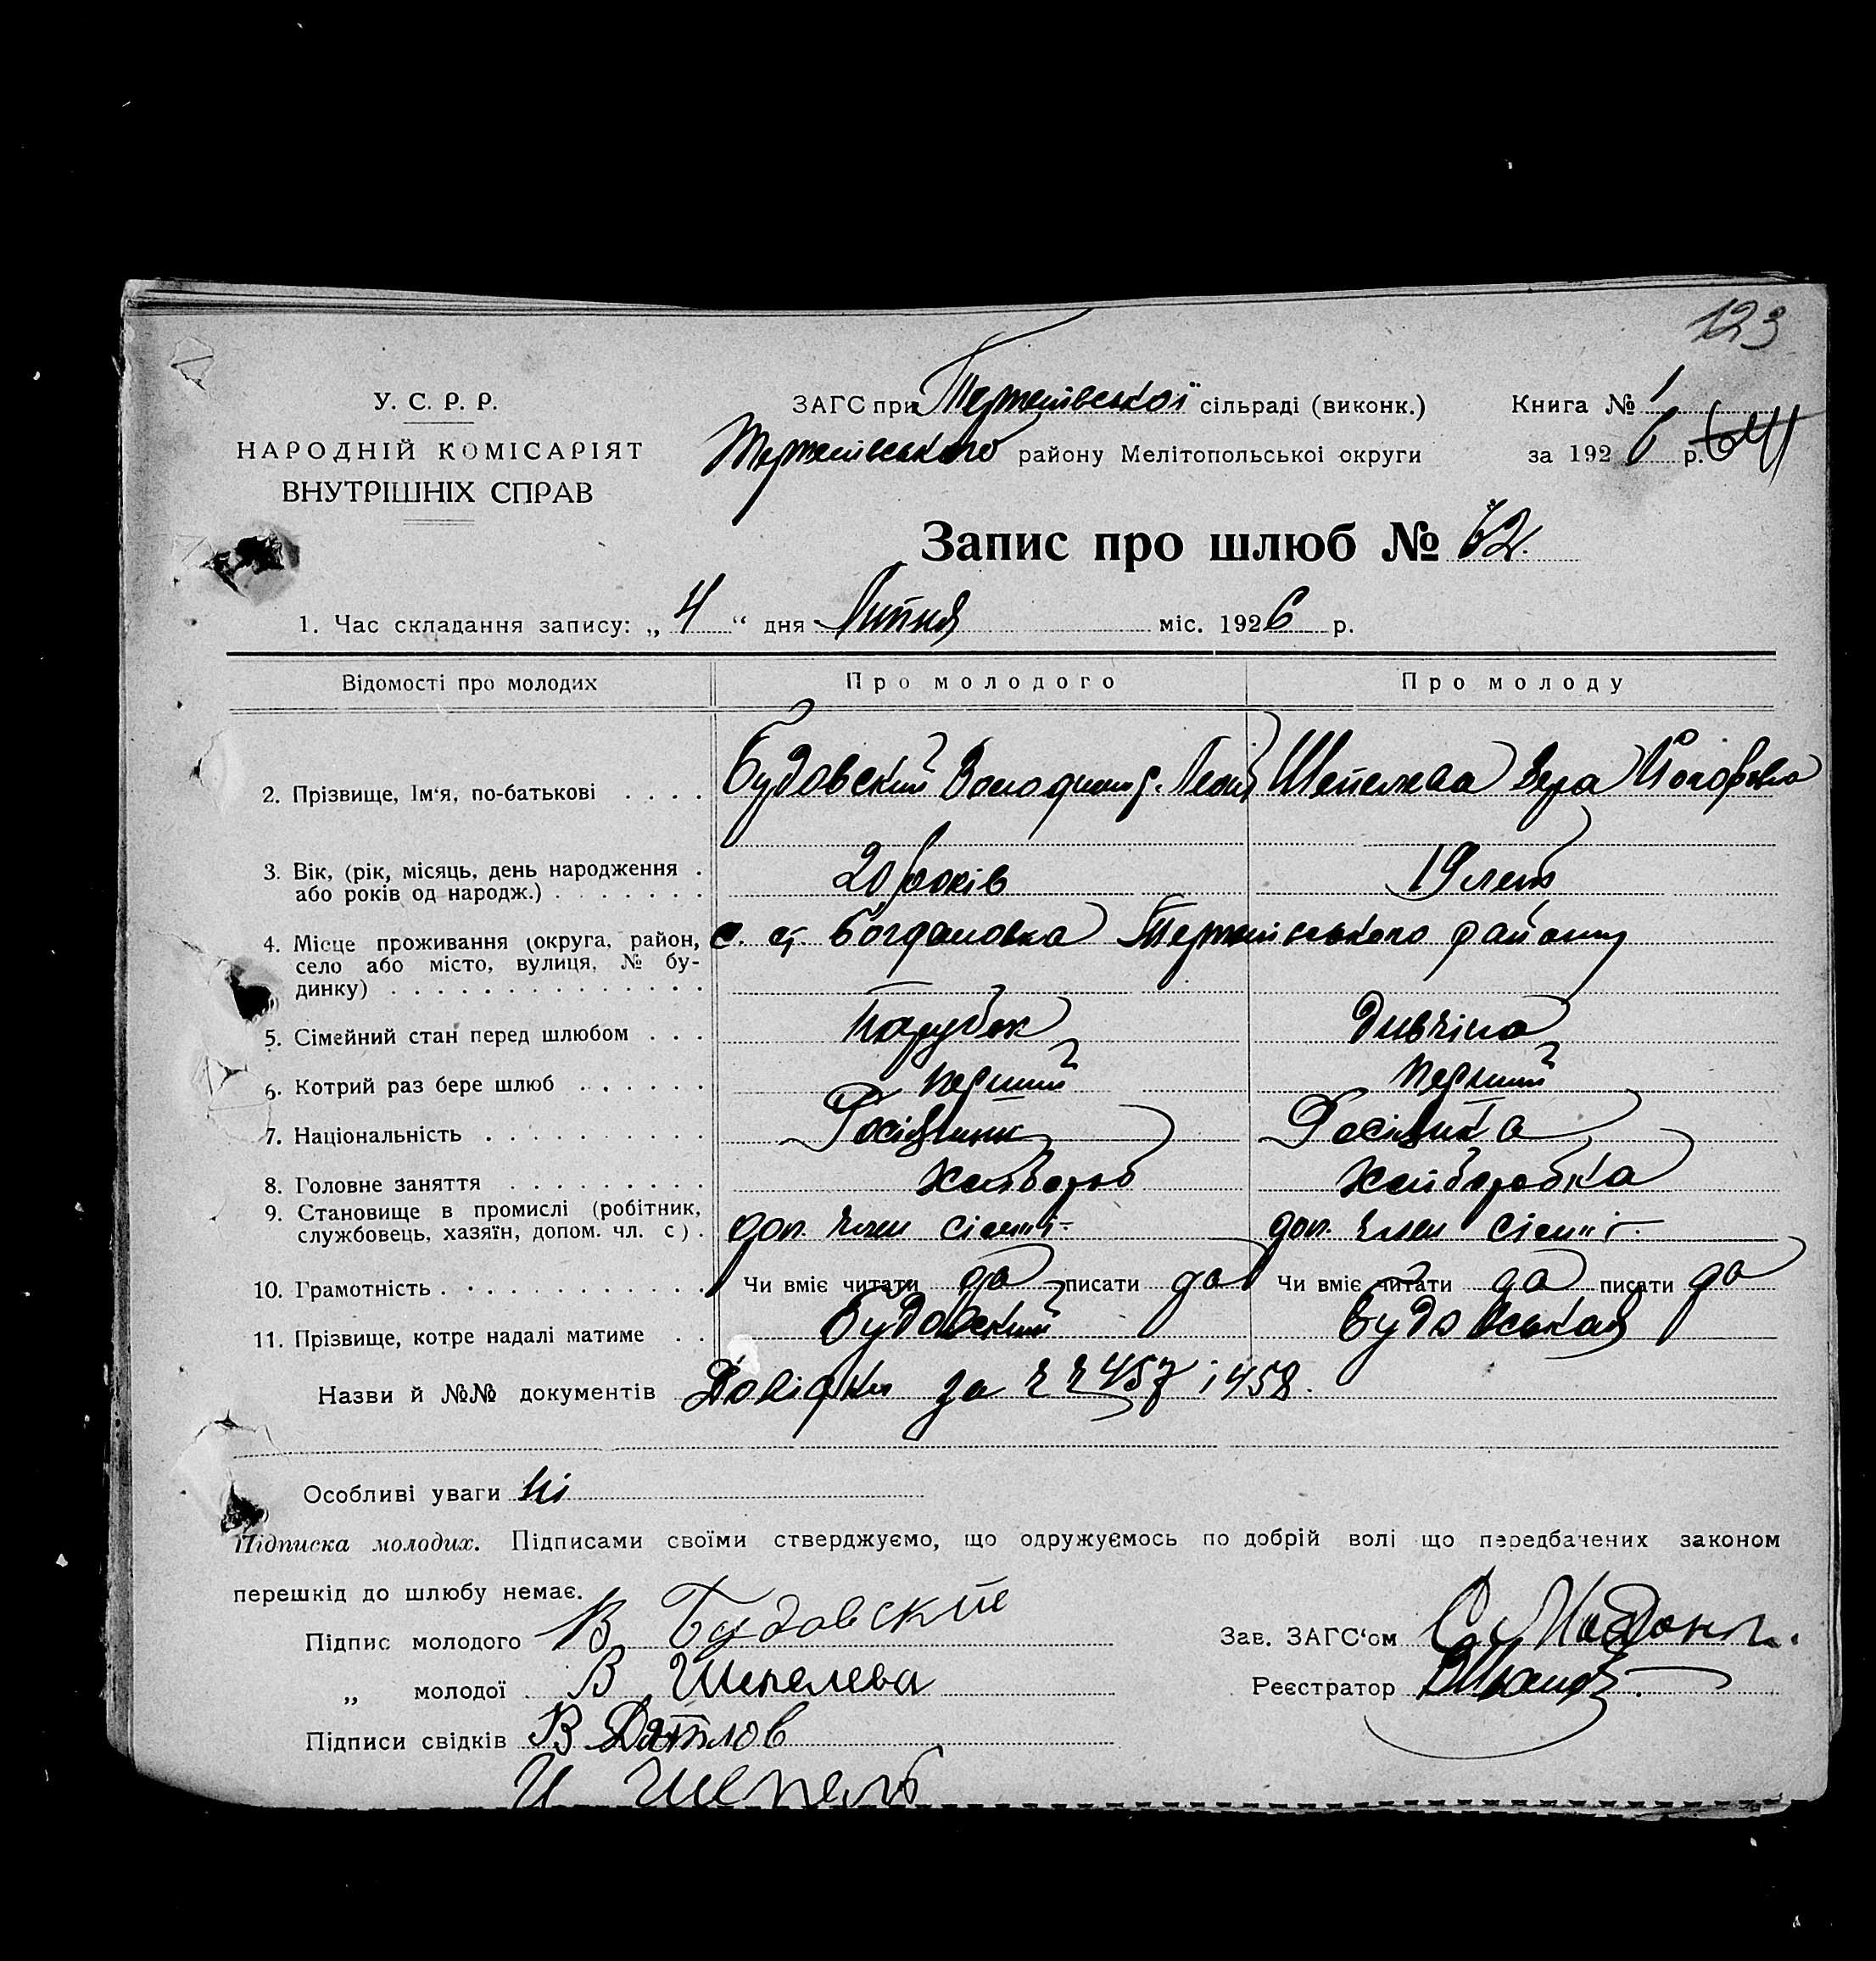 123
У. С. Р. Р.
НАРОДНІЙ КОМІСАРІЯТ
ВНУТРІШНІХ СПРАВ
ЗАГС при Терпенівської сільраді (виконк.)
Терпенівського району Мелітопольської округи
Книга № 1
за 1926 р. 64
Запис про шлюб № 62.
1. Час складання запису: „ 4 “ дня Липня міс. 1926 р.
Відомості про молодих Про молодого Про молоду
2. Прізвище, Ім‘я, по-батькові . . . . Будовский Володимир Шепелева Вера
3. Вік, (рік, місяць, день народження . 20 років 19 лет
або років од народж.) . . . . . . .
4. Місце проживання (округа, район, с. Богдановка Терпенівського району
село або місто, вулиця, № бу-
динку) . . . . . . . . . . . . . .
5. Сімейний стан перед шлюбом . . . Парубок Дивчіна
6. Котрий раз бере шлюб . . . . . . перший перший
7. Національність . . . . . . . . . .
8. Головне заняття . . . . . . . . . хлібороб хліборобка
9. Становище в промислі (робітник,
службовець, хазяїн, допом. чл. с) . доп. член сіємі доп. член сіємі
10. Грамотність . . . . . . . . . . . . Чи вміє читати да писати да Чи вміє читати да писати да
11. Прізвище, котре надалі матиме . . Будовский Будовськая
Назви й №№ документів Довідки за ч ч 457 і 458.
Особливі уваги ні
Підписка молодих. Підписами своїми стверджуємо, що одружуємось по добрій волі що передбачених законом
перешкід до шлюбу немає.
Підпис молодого В Будовские
Зав. ЗАГС‘ом
„ молодої В Шепелева
Реєстратор
Підписи свідків В Дятлов
И Шепель